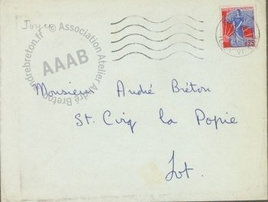 Joyce
© Association Atelier André Breton
andrebreton.fr
AAAB
Monsieur André Breton
St. Cirq la Popie
Lot.